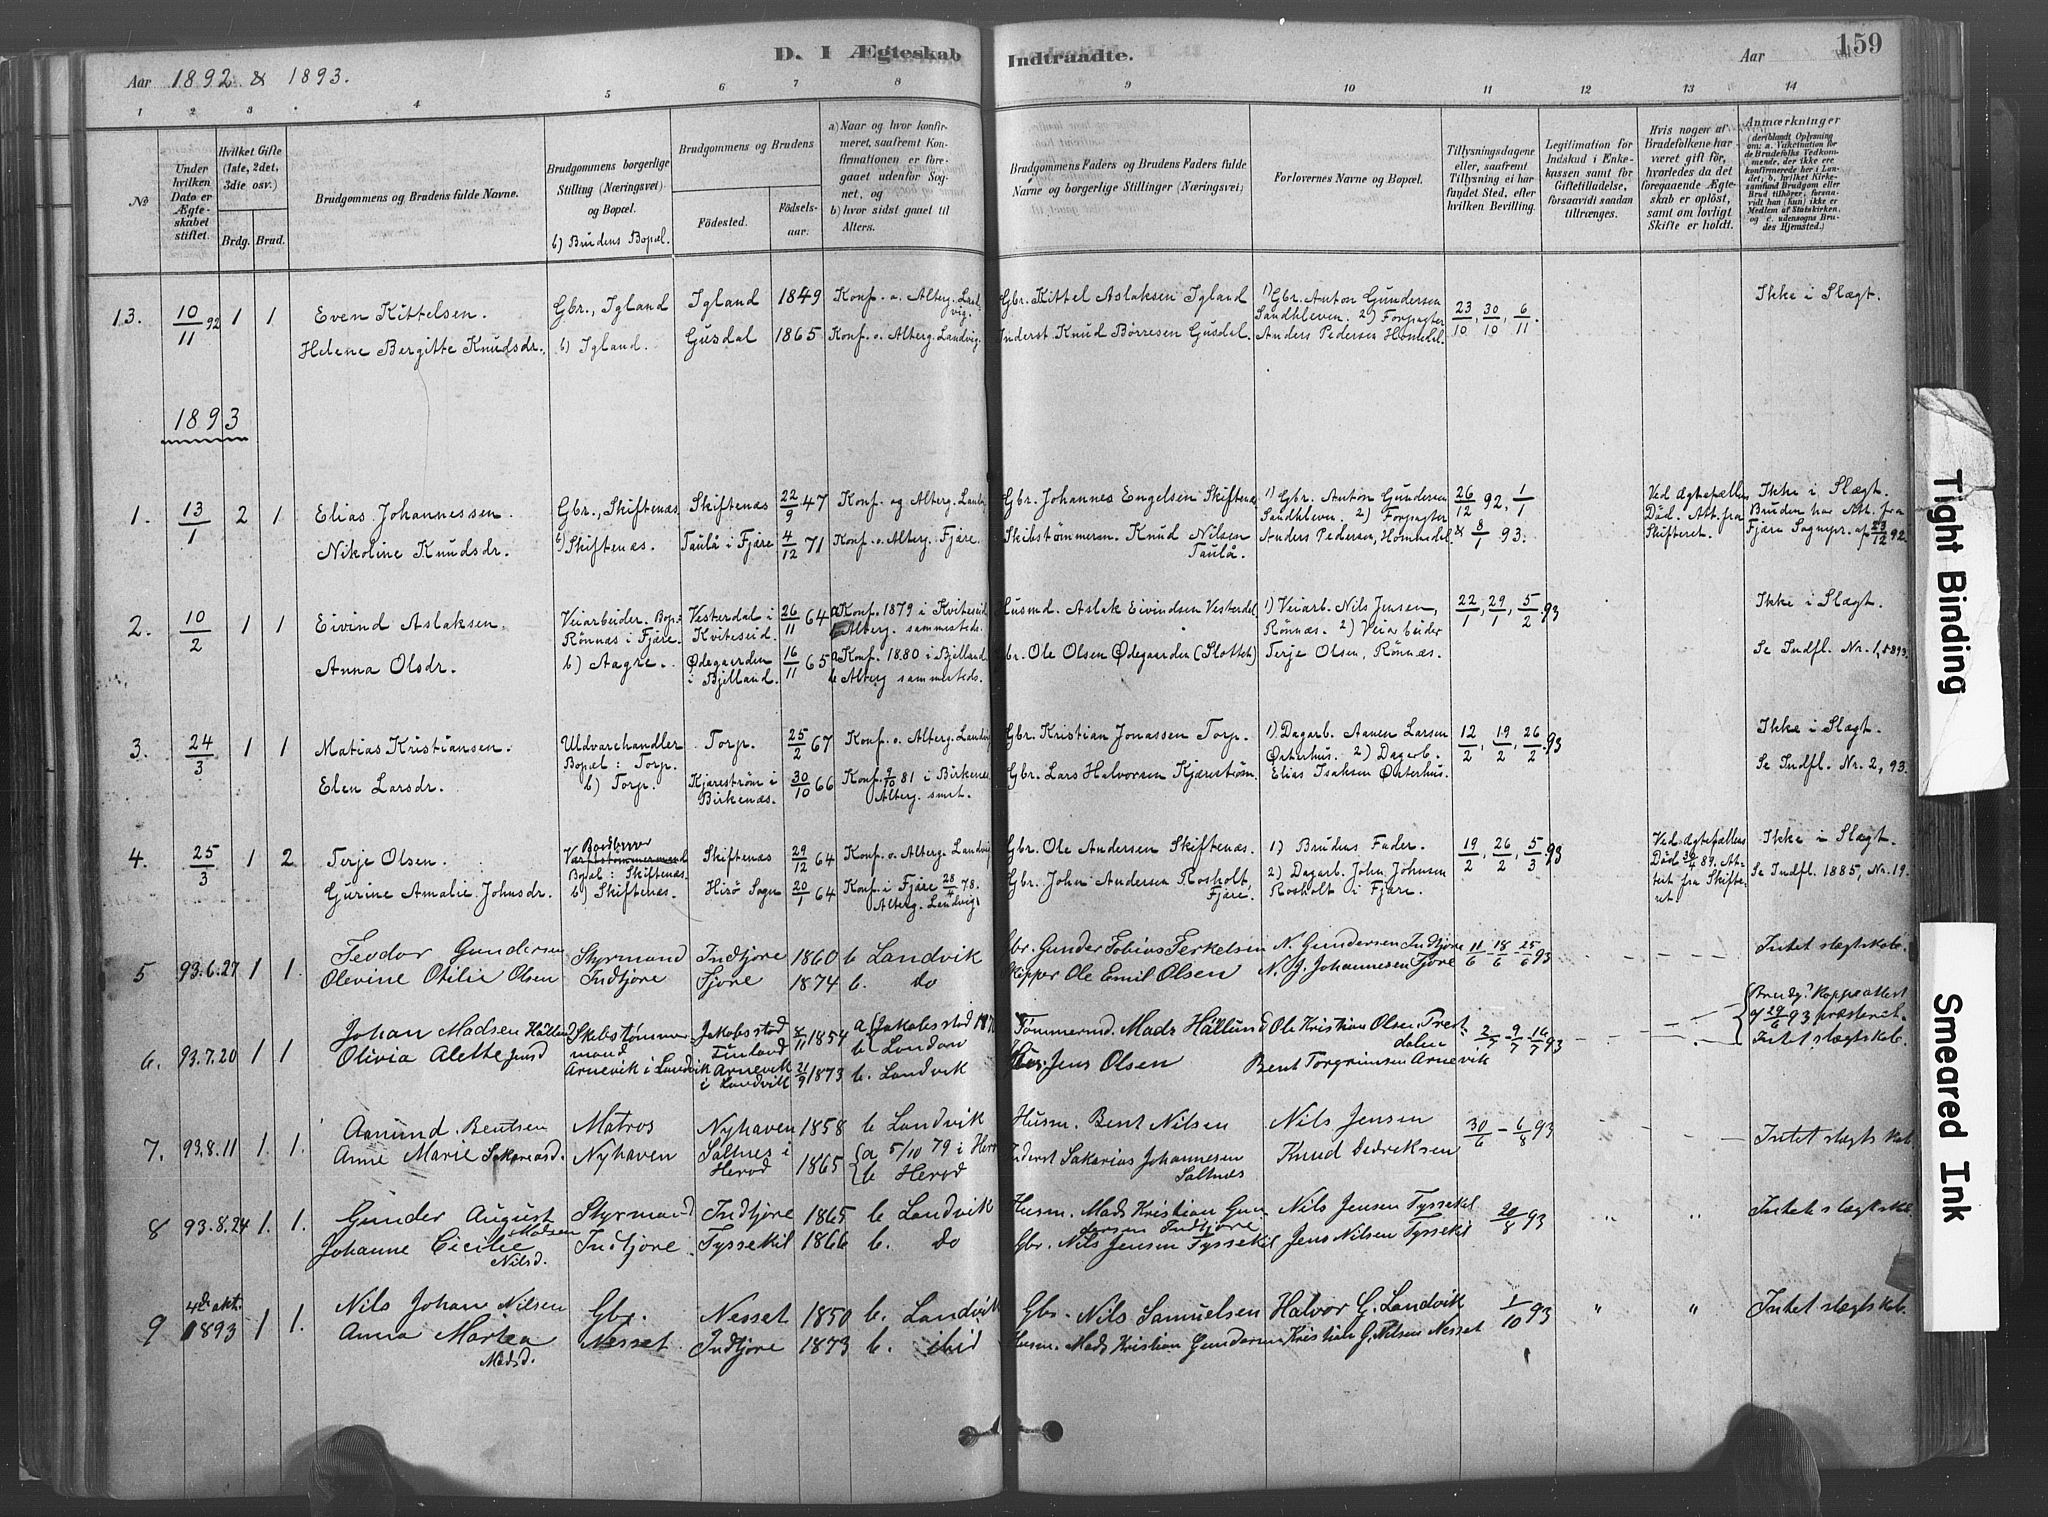 159
D. I Ægteskab Indtraadte.
Aar 1892 & 1893.
Aar
1 2 3 4 5 6 7 8 9 10 11 12 13 14
No
Under hvilken Dato er Ægteskabet stiftet.
Hvilket Gifte (1ste, 2det, 3die osv.)
Brdg. Brud.
Brudgommens og Brudens fulde Navne.
Brudgommens borgerlige Stilling (Næringsvei) og Bopæl.
b) Brudens Bopæl.
Brudgommens og Brudens
Födested.
Födsels-aar.
a) Naar og hvor konfirmeret, saafremt Konfirmationen er foregaaet udenfor Sognet, og
b) hvor sidst gaaet til Alters.
Brudgommens Faders og Brudens Faders fulde Navne og borgerlige Stillinger (Næringsvei)
Forlovernes Navne og Bopæl.
Tillysningsdagene eller, saafremt Tillysning ei har fundet Sted, efter hvilken Bevilling.
Legitimation for Indskud i Enkekassen samt for Giftetilladelse, forsaavidt saadan tiltrænges.
Hvis nogen af Brudefolkene har været gift för, hvorledes da det foregaaende Ægteskab er oplöst, samt om lovligt Skifte er holdt.
Anmærkninger
13. 10/11 92 1 1
Even Kittelsen.
Gbr., Igland
Igland 1849
Konf. o. Alterg. Landvig.
Gbr. Kittel Aslaksen Igland
1) Gbr. Anton Gundersen Sandkleven. 2) Forpagter
23/10, 30/10, 6/11.
Ikke i Slægt.
Helene Bergitte Knudsdr.
b) Igland.
Gusdal 1865
Konf. o. Alterg. Landvig.
Inderst Knud Börresen Gusdal
Anders Pedersen Homedal
1893
1. 13/1 2 1
Elias Johannessen
Gbr., Skiftenæs
Skiftenæs 22/9 47
Konf. og Alterg. Landv.
Gbr. Johannes Engelsen Skiftenæs
1) Gbr. Anton Gundersen Sandkleven. 2) Forpagter
26/12 92, 1/1 & 8/1 93.
Ved Ægtefællens Död. Att. fra Skifteret.
Ikke i Slægt.
Bruden har Att. fra Fjære Sognepr. af 23/12 92.
Nikoline Knudsdr.
b) Skiftenæs.
Taulå i Fjære 4/12 71
Konf. o. Alterg. Fjære.
Skibstømmerm. Knud Nilsen Taulå.
Anders Pedersen, Hommedal
2. 10/2 1 1
Eivind Aslaksen.
Veiarbeider. Bop: Rönnæs i Fjære.
Vesterdal i Kviteseid. 26/11 64
a Konf. 1879 i Kviteseid
Alterg. sammesteds.
Husmd. Aslak Eivindsen Vesterdal
1) Veiarb. Nils Jensen, Rönnæs. 2) Veiarbeider
22/1, 29/1, 5/2 93
Ikke i Slægt.
Anna Olsdr.
b) Aagre.
Ødegaarden i Bjelland. 16/11 65
a Konf. 1880 i Bjelland
b Alterg sammesteds.
Gbr. Ole Olsen Ødegaarden (Slottet)
Terje Olsen, Rönnæs.
Se Indfl. Nr. 1, 1893.
3. 24/3 1 1
Matias Kristiansen.
Uldvarehandler Bopæl: Torp.
Torp. 25/2 67
Konf. o. Alterg. Landvig
Gbr. Kristian Jonassen Torp.
1) Dagarb. Aanen Larsen Østerhus. 2) Dagarb.
12/2, 19/2, 26/2 93
Ikke i Slægt.
Elen Larsdr.
b) Torp.
Kjæreström i Birkenæs. 30/10 66
Konf. 9/10 81 i Birkenæs
Alterg. smst.
Gbr. Lars Halvorsen Kjæreström
Elias Isaksen Østerhus.
Se Indfl. Nr. 2, 93.
4. 25/3 1 2
Terje Olsen.
Bopæl: Skiftenæs.
Skiftenæs 29/12 64
Konf. o. Alterg. Landvig
Gbr. Ole Andersen Skiftenæs.
1) Brudens Fader.
19/2, 26/2, 5/3 93
Ved Ægtefællens Död 30/4 89. Attest fra Skifteret.
Ikke i Slægt.
Gurine Amalie Johnsdr.
b) Skiftenæs.
Hisö Sogn 20/1 64
Konf. i Fjære 28/4 78.
Alterg. Landvig.
Gbr. John Andersen Rosholt, Fjære.
2) Dagarb. John Johnsen Rosholt i Fjære.
Se Indfl. 1885, Nr. 19.
5 93.6.27 1 1.
Teodor Gundersen
Styrmand
Indtjore 1860
b Landvik
Gbr. Gunder Tobias Terkelsen
N. Gundersen Indtjore
11/6 - 18/6 - 25/6 93
Intet slægtskab.
Olevine Otilie Olsen
Indtjore
Fjore 1874
b. do
Skipper Ole Emil Olsen
N. J. Johannesen Fjore
6. 93.7.20 1 1
Johan Madsen Hällund
Skibstømmermand
Jakobsstad Finland 1854
a (Jakobsstad 1870
b London
Tömmermd. Mads Hällund
Ole Kristian Olsen Trestdalen
2/7 - 9/7 - 16/7 93
Brudg. Koppeattest af 29/6 93 præsteret.
Intet slægtskab.
Olivia Alette Jensd
Arnevik i Landvik
Arnevik i Landvik 21/9 1873
b. Landvik
Jens Olsen
Bent Torgrimsen Arnevik
7. 93.8.11 1. 1.
Aanund Bentsen
Matros
Nyhaven 1858
b Landvik
Husm. Bent Nilsen
Nils Jensen
30/6 - 6/8 93
Intet slægtskab
Anne Marie Sakariasd.
Nyhaven
Saltnes i Herød 1865
a 5/10 79 i Herød
b Herød
Inderst Sakarias Johannesen Saltnes
Knud Dedreksen
8 93.8.24 1. 1.
Gunder August Madsen
Styrmand
Indtjore 1865
b Landvik
Husm. Mads Kristian Gundersen Indtjore
Nils Jensen Tyssekil
20/8 93
Intet slægtskab.
Johanne Cecilie Nilsd.
Indtjore
Tyssekil 1866
b. do
Gbr. Nils Jensen Tyssekil
Jens Nilsen Tyssekil
9 4de okt. 1893 1 1.
Nils Johan Nilsen
Gbr.
Nesset 1850
b. Landvik
Gbr. Nils Samuelsen
Halvor G. Landvik
1/10 93
Intet slægtskab.
Anna Martea Madsd.
Nesset
Indtjore 1873
b. ibid
Husm. Mads Kristian Gundersen
Kristian G. Nilsen Nesset
Tight Binding
Smeared Ink